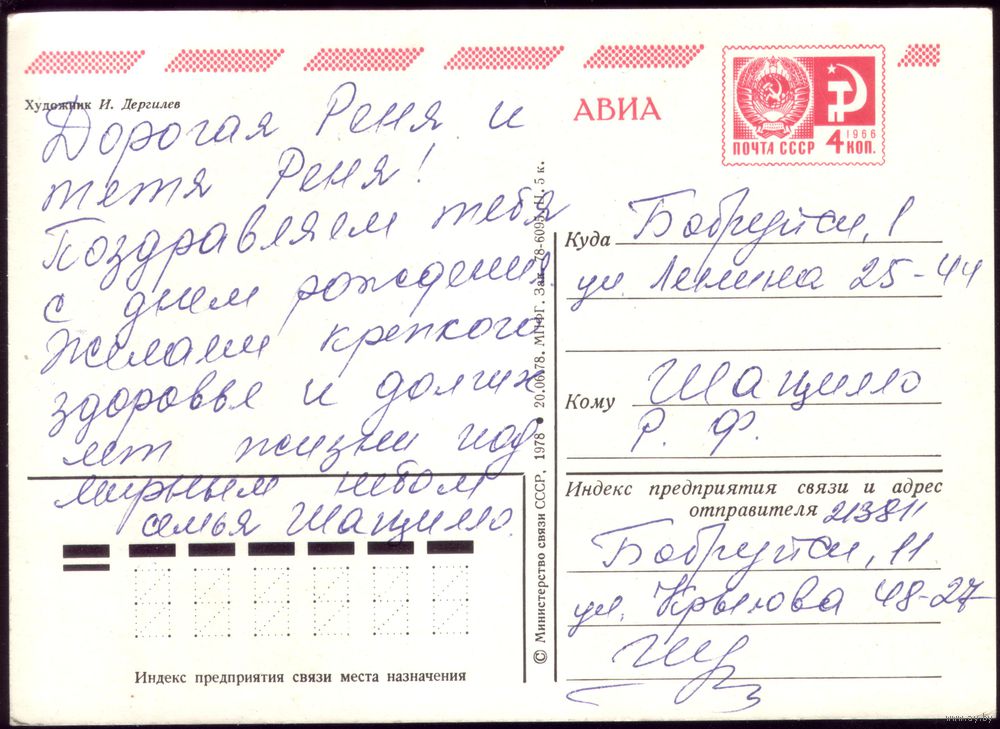 Художник И. Дергилев
АВИА
ПОЧТА СССР
1966
4 КОП.
Дорогая Реня и
тетя Реня!
Поздравляем тебя
с днем рождения.
Желаем крепкого
здоровья и долгих
лет жизни под
мирным небом
семья Шацилло.
Индекс предприятия связи места назначения
© Министерство связи СССР, 1978 • 20.06.78. МПФГ. Зак. 78-6095. Ц. 5 к.
Куда Бобруйск, 1
ул. Ленина 25-44
Кому Шацилло
Р. Ф.
Индекс предприятия связи и адрес
отправителя 213811
Бобруйск, 11
ул. Крылова 48-27
www.ay.by